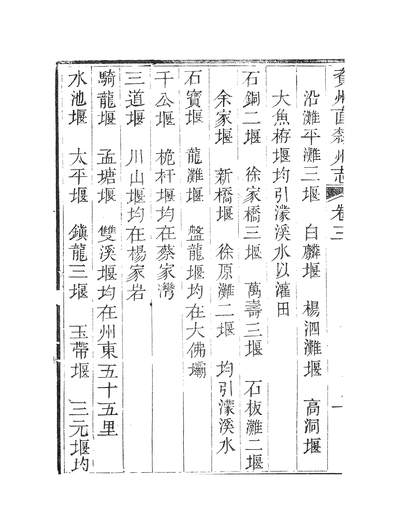 資州直隸州志 卷三 一
沿灘平灘三堰 白麟堰 楊泗灘堰 高洞堰
大魚栫堰均引濛溪水以灌田
石銅二堰 徐家橋三堰 萬壽三堰 石板灘二堰
余家堰 新橋堰 徐原灘二堰 均引濛溪水
石寶堰 龍灘堰 盤龍堰均在大佛壩
干公堰 桅杆堰均在蔡家灣
三道堰 川山堰均在楊家岩
騎龍堰 孟塘堰 雙溪堰均在州東五十五里
水池堰 太平堰 鎮龍三堰 玉帶堰 三元堰均